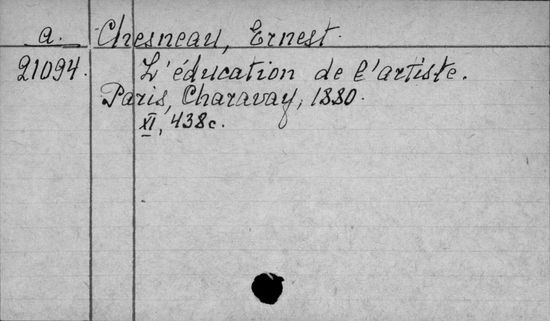 a. Chesneau, Ernest.
21094. L'éducation de l'artiste.
Paris, Charavay, 1880.
XI, 438c.